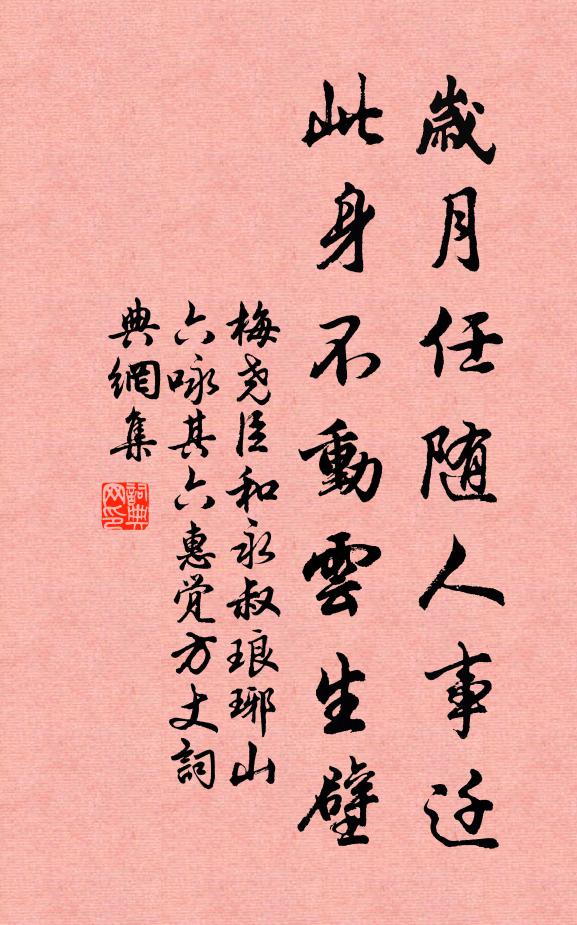 歲月任随人事迁
此身不動雲生壁
梅尧臣和永叔琅琊山
六咏其六惠觉方丈詞
典網集
詞典网印